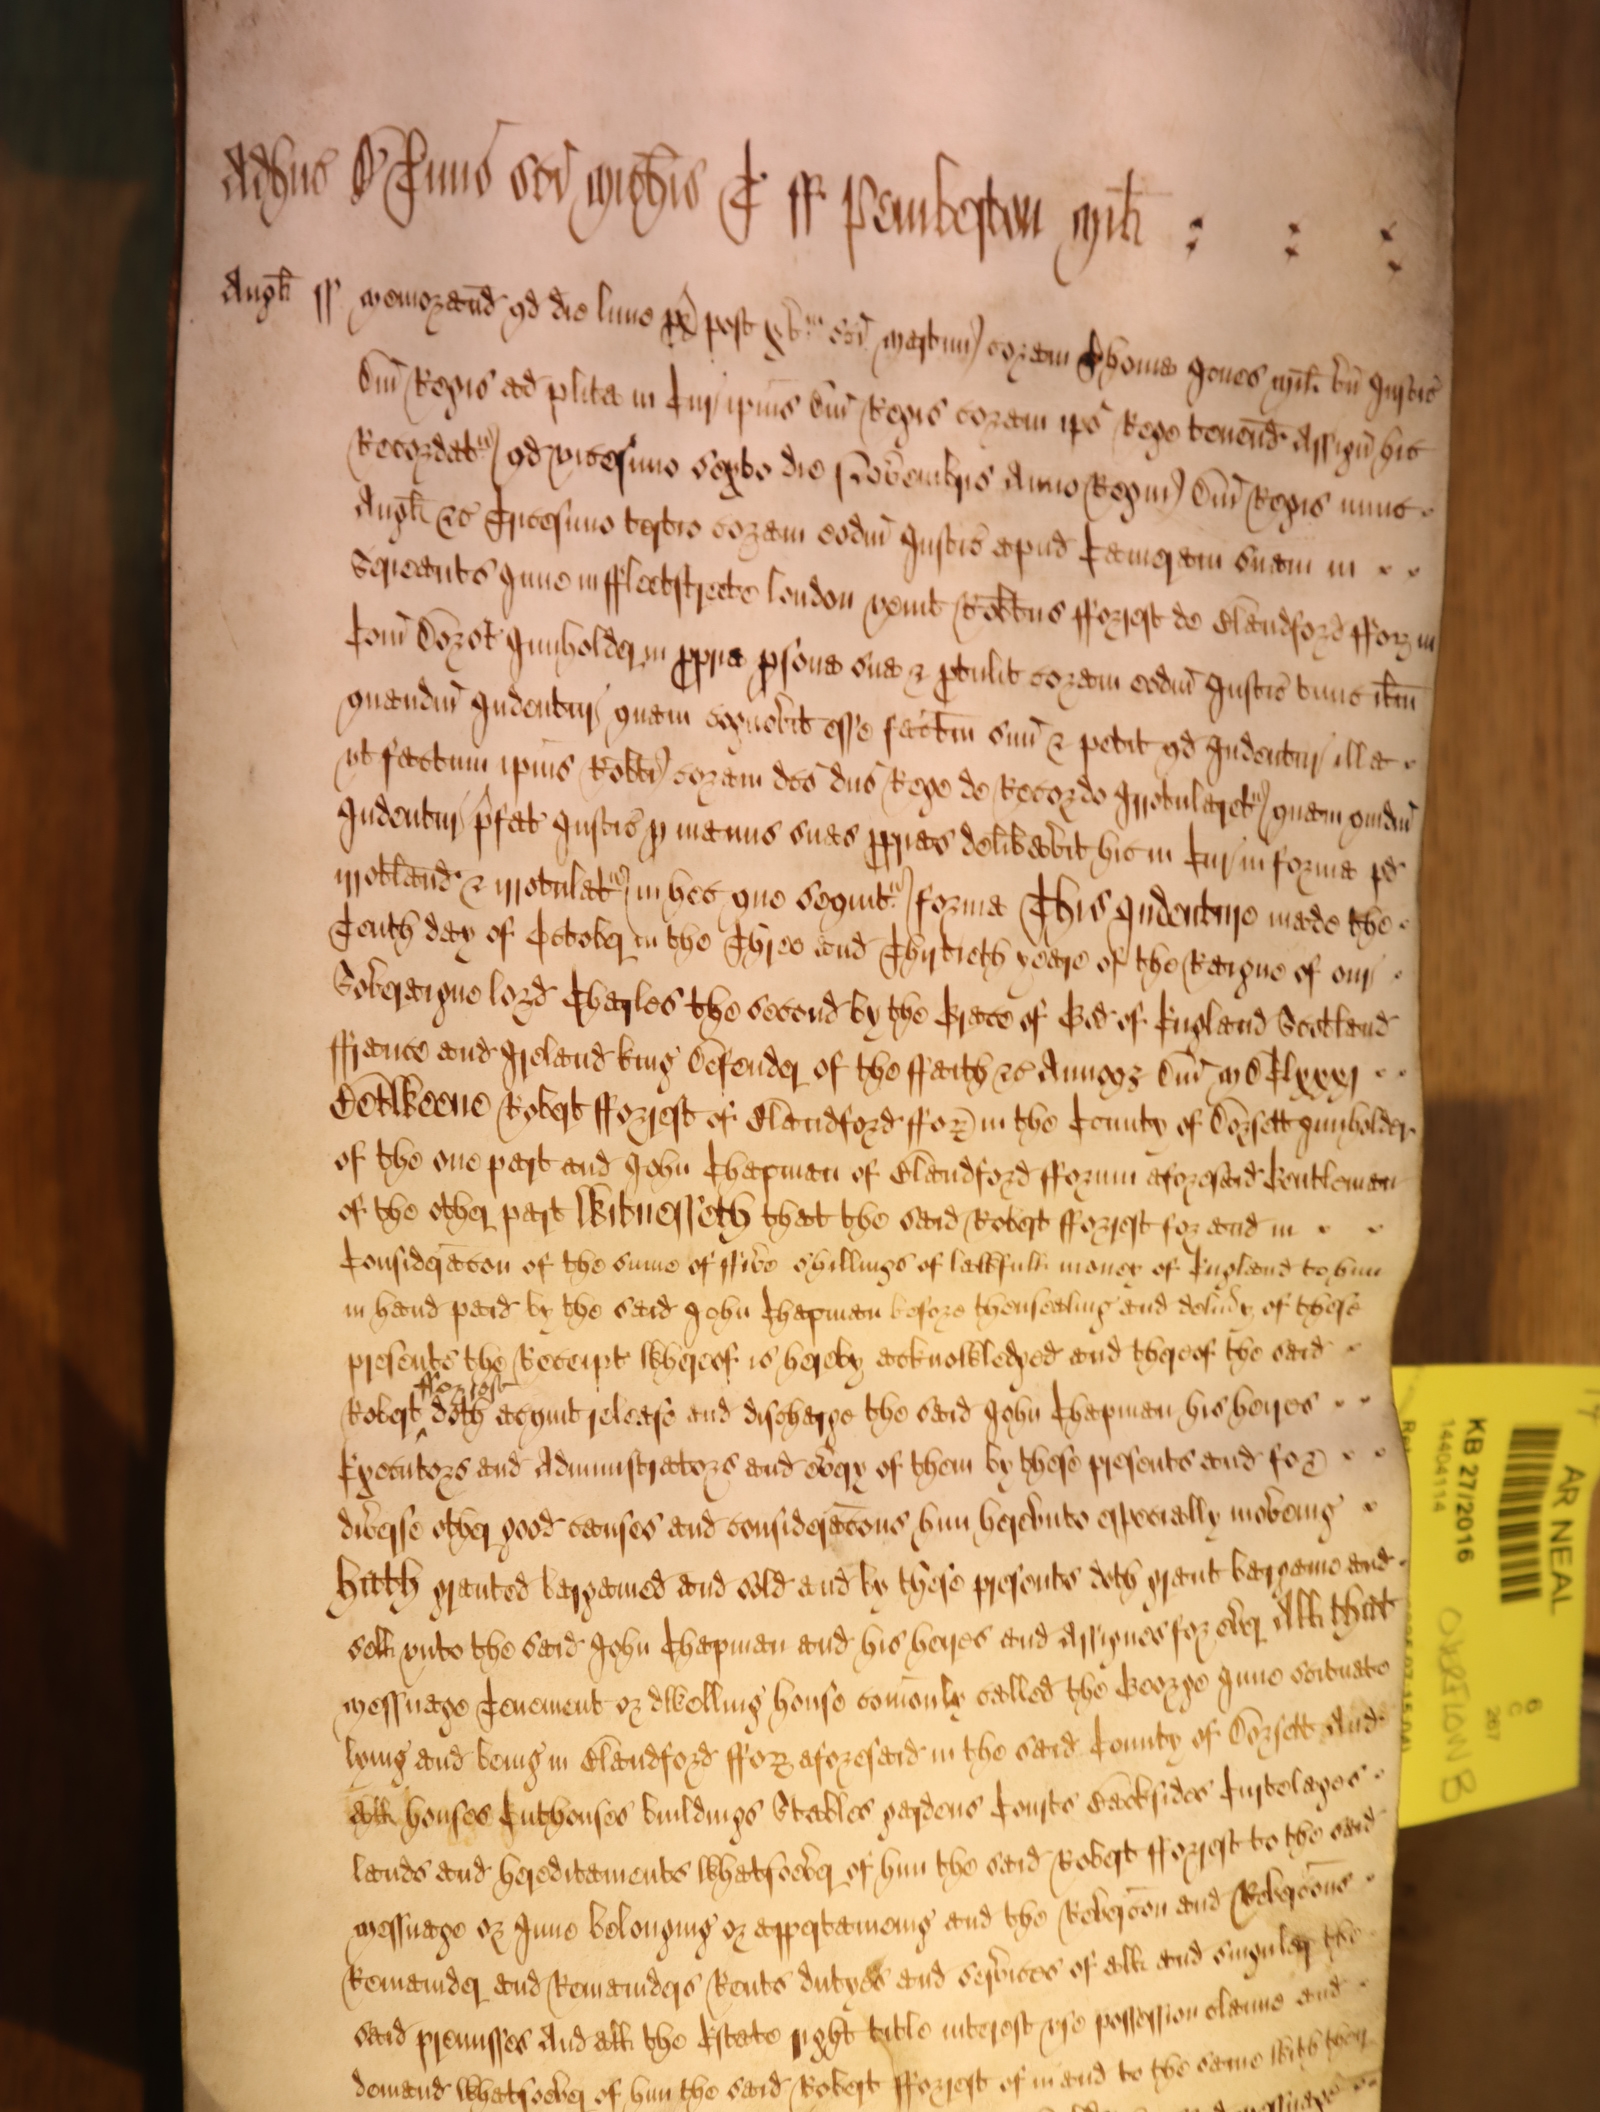 Adhuc de Tmino Sci Michis T ff Pemberton Mil
Angl ss Memorand qd die lune px post xvm Sci Martini coram Thoma Jones Mil un Justic
Dni Regis ad plita in Cur ipius Dni Regis coram ipo Rege tenend Assign hic
Recordat qd vicesimo sexto die Novembris Anno Regni Dni Regis nunc
Angl &c Tricesimo tertio coram eodm Justic apud Cameram suam in
Serjeants Inne in ffleetstreete London venit Robtus fforrest de Blandford fforu in
Com Dorset Innholder in ppria psona sua & ptulit coram eodm Justic tunc ibm
quandm Indentur quam cognovit esse factm suu & petit qd Indentur illa
ut factum ipius Robti coram dco dno Rege de Recordo Irrotularet quam quidm
Indentur pfat Justic p manus suas pprias delibavit hic in Cur in forma pd
irrotland & irrotulat in hec que sequit forma This Indenture made the
Tenth day of October in the Three and Thirtieth yeare of the Raigne of our
Soveraigne lord Charles the second by the Grace of God of England Scotland
ffrance and Ireland king Defender of the ffaith &c Annoqz Dni MDCLxxxj
Betweene Robert fforrest of Blandford ffor in the County of Dorsett Innholder
of the one part and John Chapman of Blandford fforum aforesaid Gentleman
of the other part Witnesseth that the said Robert fforrest for and in
Consideracon of the sume of ffive shillings of lawfull money of England to him
in hand paid by the said John Chapman before thensealing and delivy of these
presents the Receipt whereof is hereby acknowledged and thereof the said
fforrest
Robert doth acquit release and discharge the said John Chapman his heires
Executors and Administrators and every of them by these presents and for
diverse other good causes and consideracons him hereunto especially moveing
hath granted bargained and sold and by these presents doth grant bargaine and
sell unto the said John Chapman and his heires and Assignes for ever All that
Messuage Tenement or dwelling house comonly called the George Inne scituate
lying and being in Blandford ffor aforesaid in the said County of Dorsett And
all houses Outhouses buildings Stables gardens Courts Backsides Curtelages
lands and hereditaments whatsoever of him the said Robert fforrest to the said
Messuage or Inne belonging or appertaineing and the Revercon and Revercons
Remainder and Remainders Rents dutyes and services of all and singuler the
said premisses And all the Estate right title interest use possession claime and
demand whatsoever of him the said Robert fforrest of in and to the same with their
AR NEAL
KB 27/2016
14404114
267